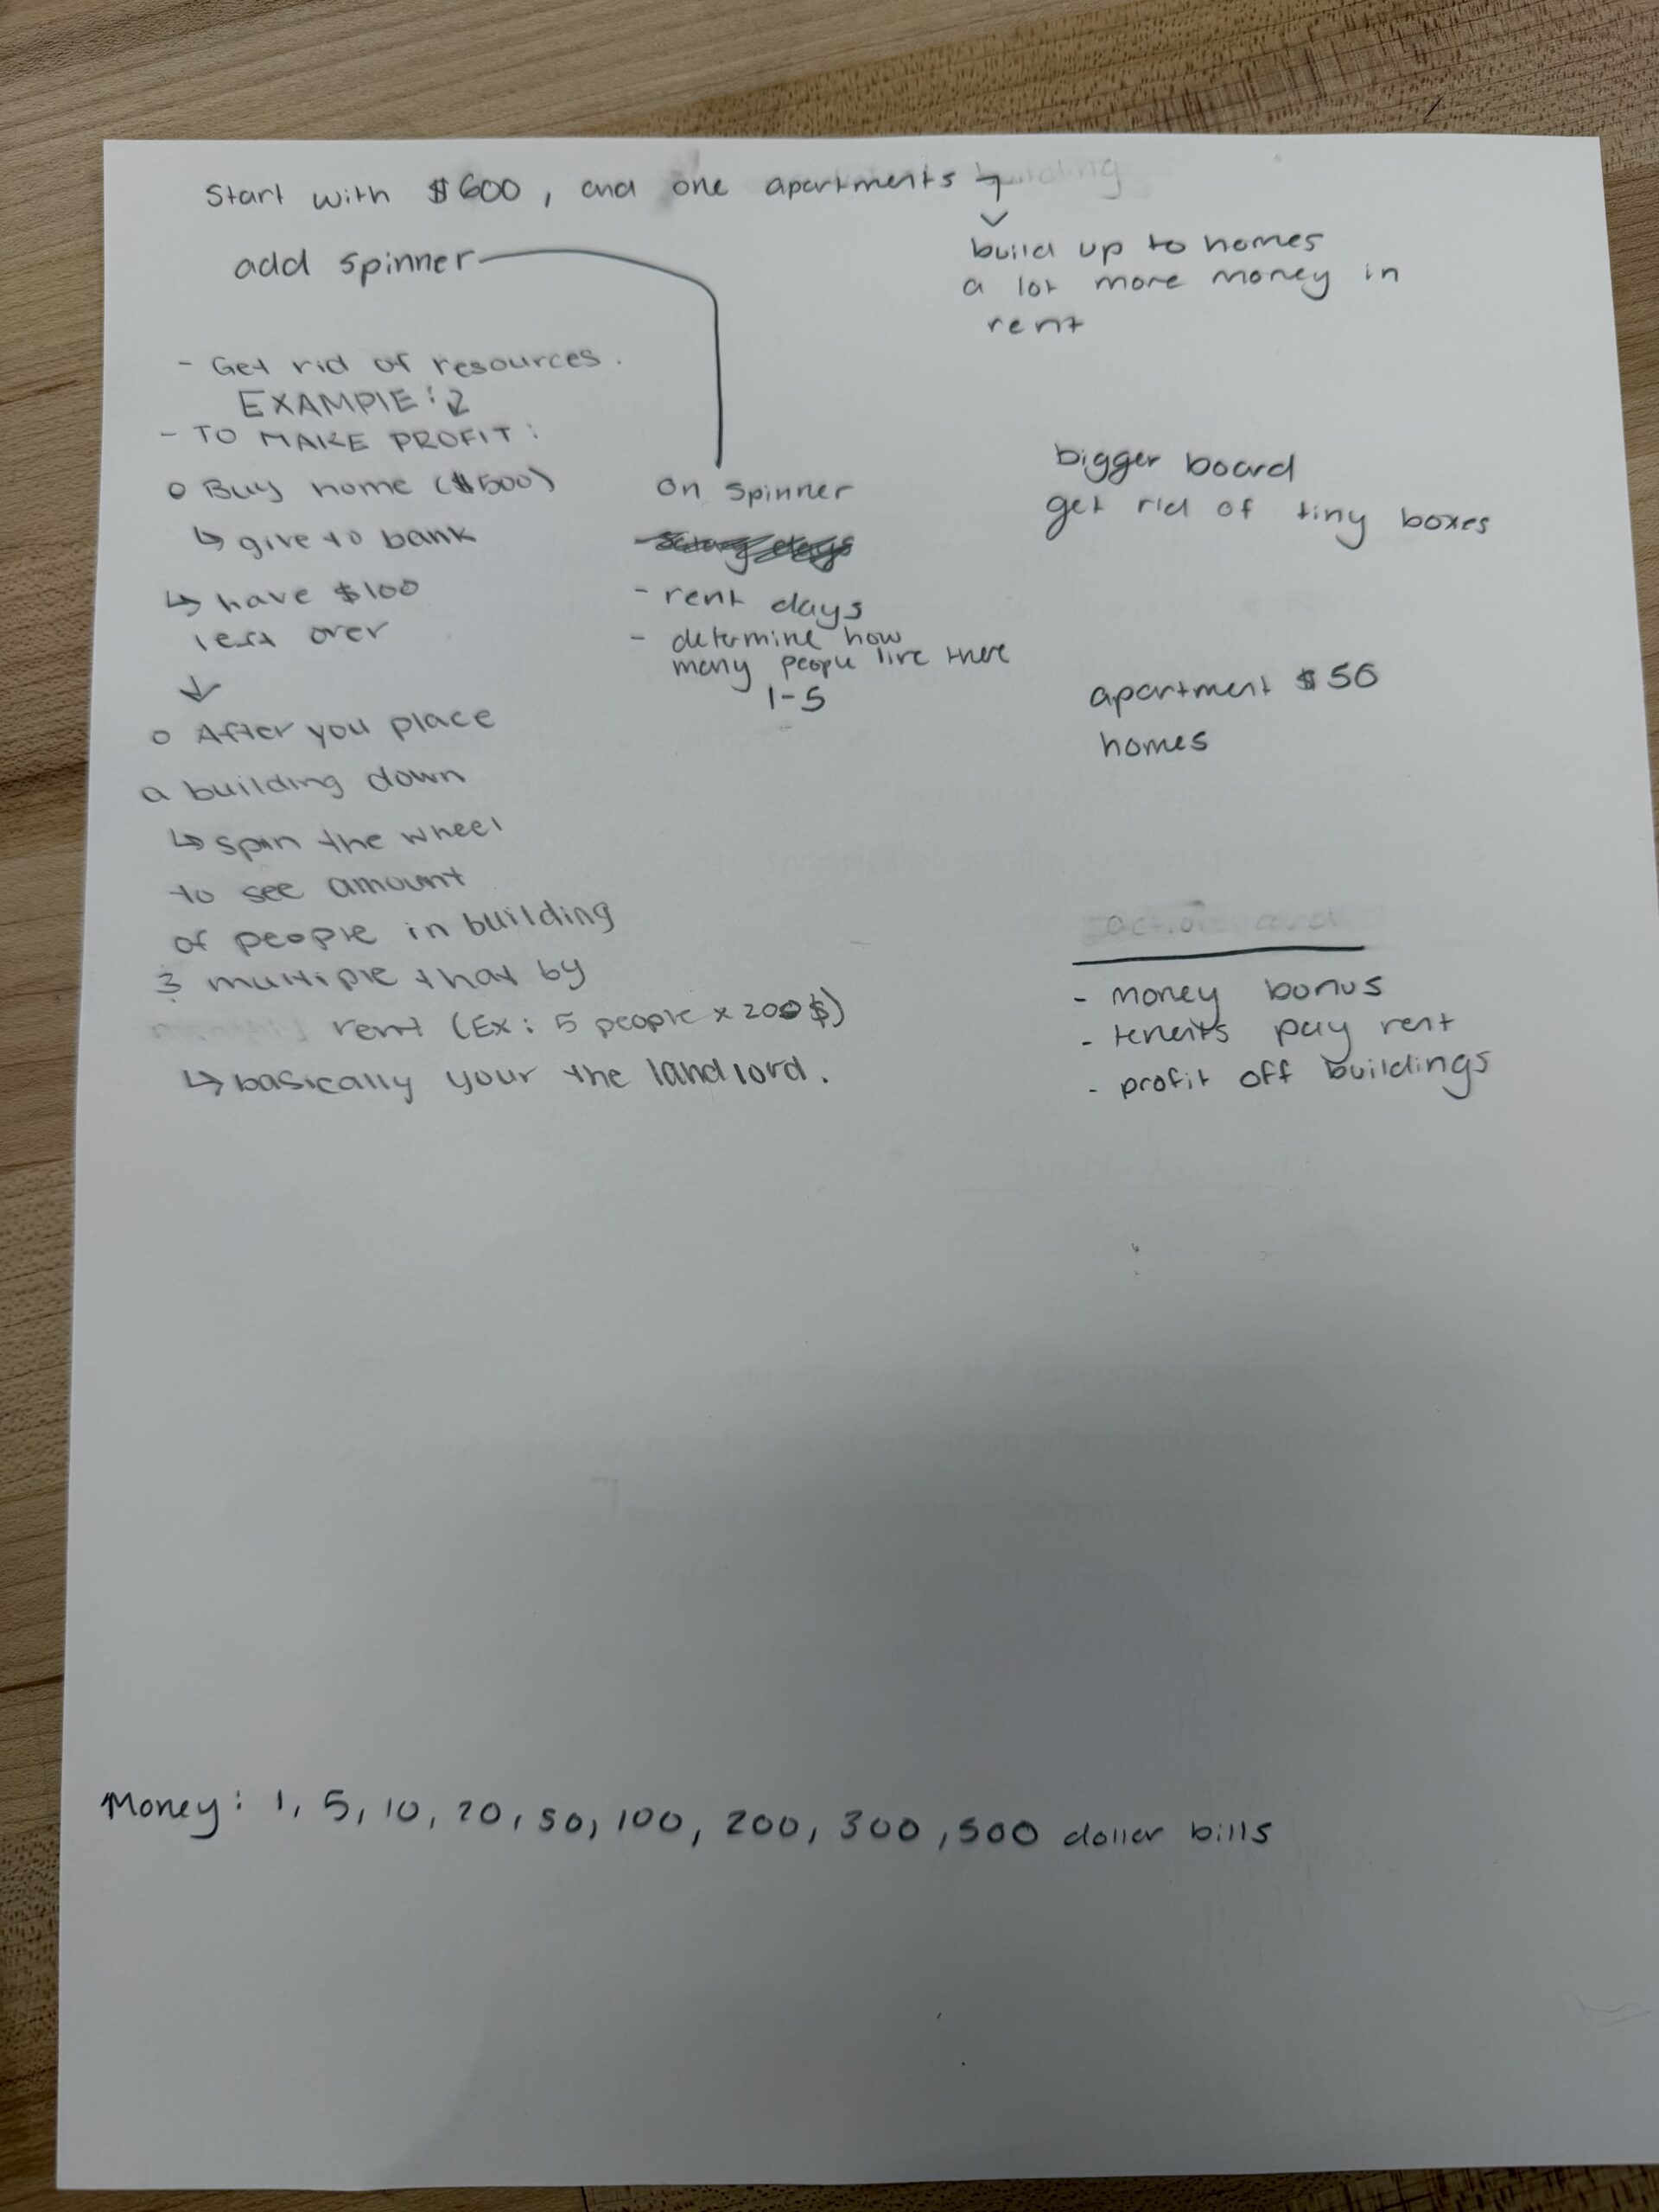 Start with $600, and one apartments
build up to homes
a lot more money in
rent
add spinner
- Get rid of resources.
EXAMPLE:
- TO MAKE PROFIT:
o Buy home ($500)
↳ give to bank
↳ have $100
left over
↓
o After you place
a building down
↳ spin the wheel
to see amount
of people in building
& multiple that by
rent (Ex: 5 people x 200$)
↳ basically your the landlord.
on spinner
- rent days
- determine how
many people live there
1-5
bigger board
get rid of tiny boxes
apartment $50
homes
action card
- money bonus
- tenents pay rent
- profit off buildings
Money: 1, 5, 10, 20, 50, 100, 200, 300, 500 doller bills